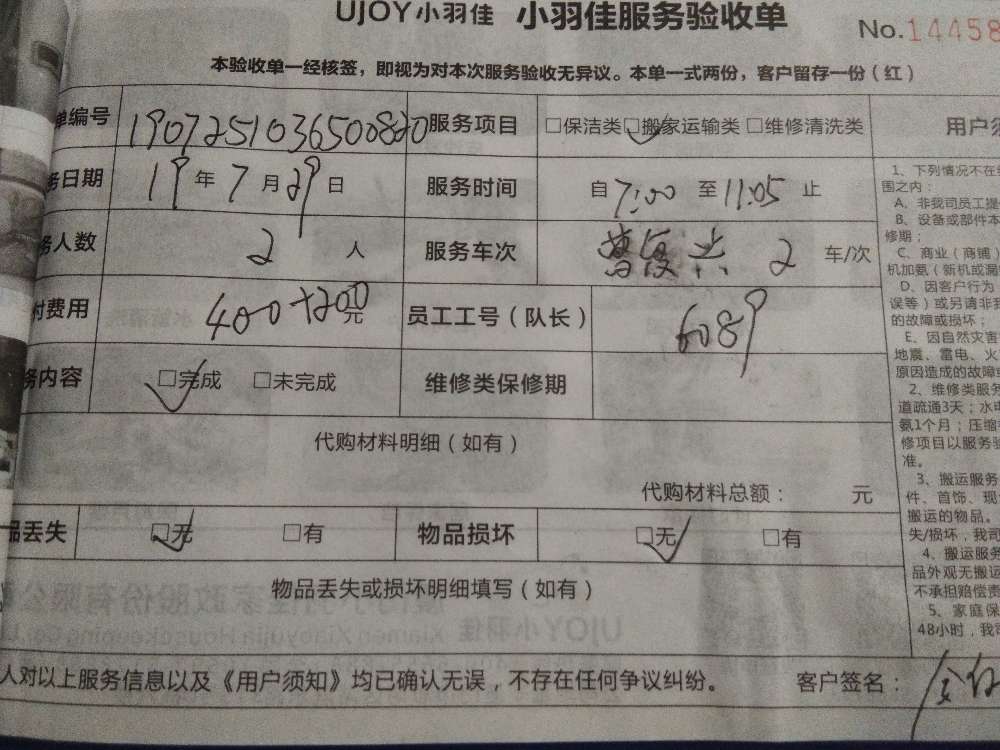 UJOY小羽佳 小羽佳服务验收单
No.14458
本验收单一经核签，即视为对本次服务验收无异议。本单一式两份，客户留存一份（红）
单编号 1907251036500820 服务项目 □保洁类 □搬家运输类 □维修清洗类
务日期 19年7月29日 服务时间 自7:00至11:05止
务人数 2人 服务车次 2 车/次
付费用 400+200元 员工工号（队长） 6089
务内容 □完成 □未完成 维修类保修期
代购材料明细（如有）
代购材料总额： 元
品丢失 □无 □有 物品损坏 □无 □有
物品丢失或损坏明细填写（如有）
人对以上服务信息以及《用户须知》均已确认无误，不存在任何争议纠纷。 客户签名：
用户须
1、下列情况不在
围之内：
A、非我司员工提
B、设备或部件本
修期；
C、商业（商铺）
机加氨（新机或漏
D、因客户行为
误等）或另请非
的故障或损坏；
E、因自然灾害
地震、雷电、火
原因造成的故障或
2、维修类服务
道疏通3天；水电
氨1个月；压缩
修项目以服务验
准。
3、搬运服务
件、首饰、现
搬运的物品。
失/损坏，我司
4、搬运服务
品外观无搬运
不承担赔偿责
5、家庭保
48小时，我司